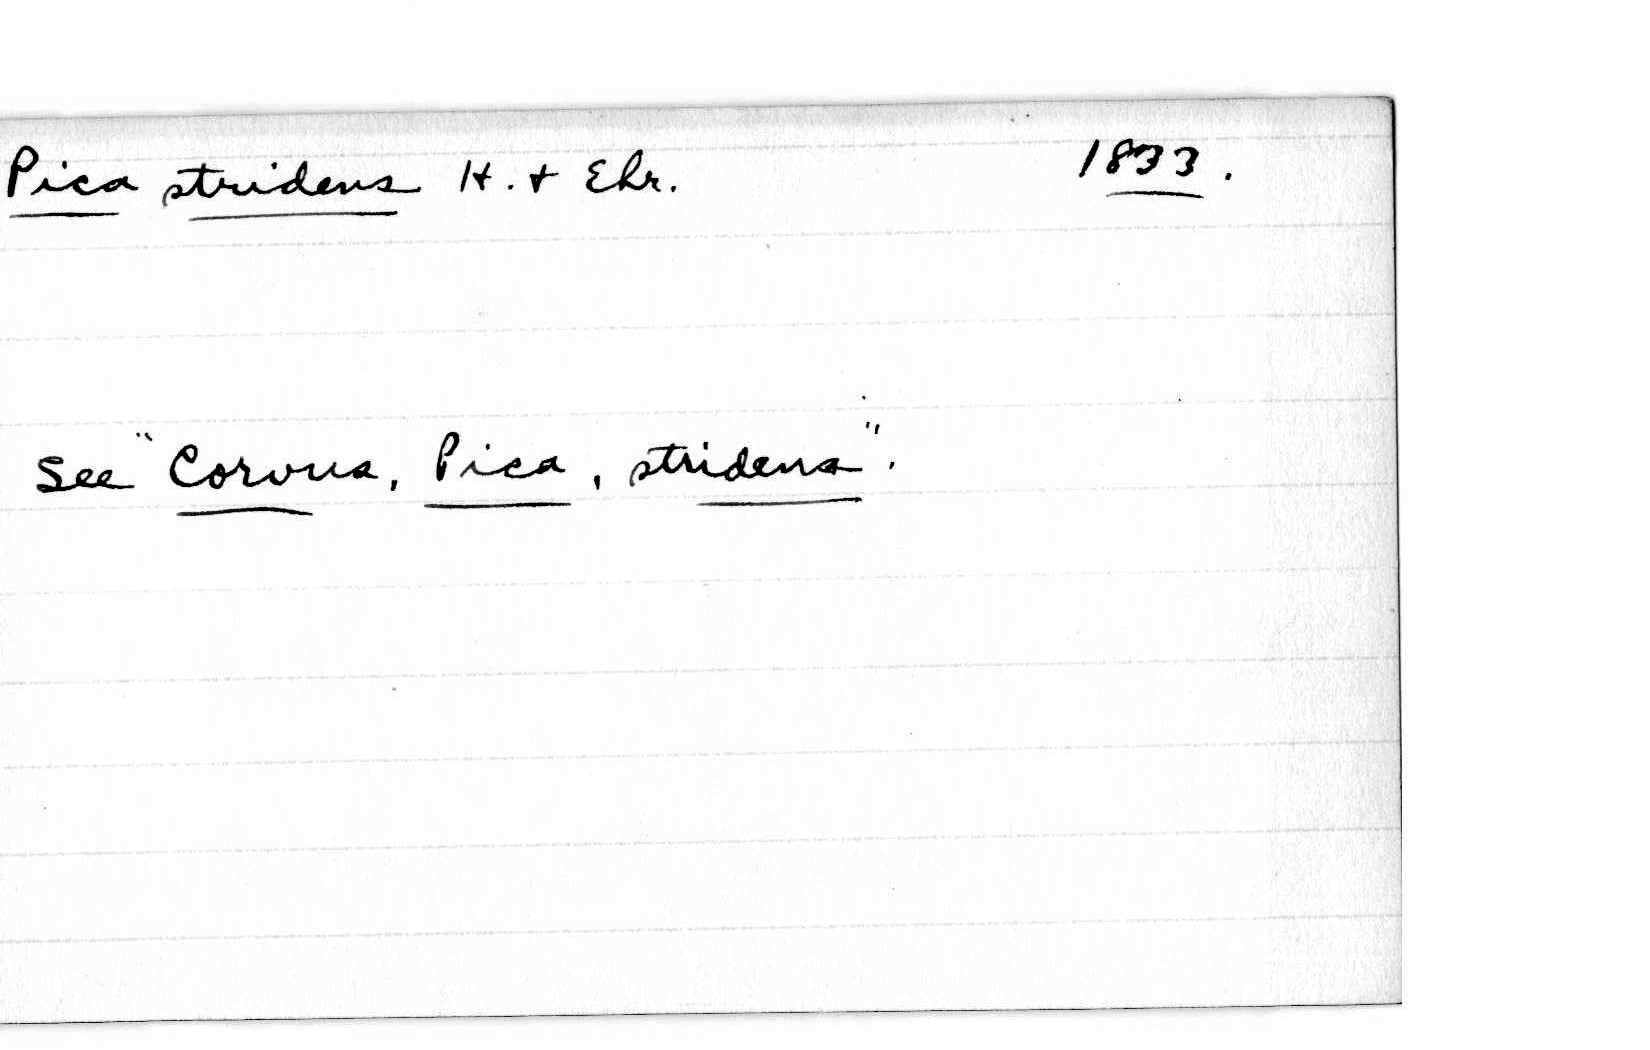 Pica stridens H. & Ehr. 1833.
See "Corvus, Pica, stridens".